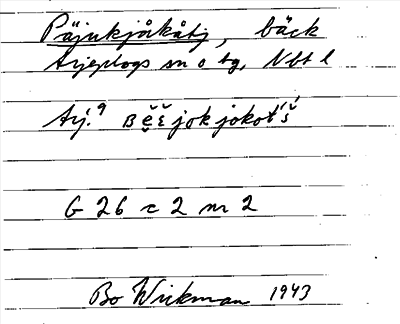 Päjukjåkåtj, bäck
Arjeplogs sn o tg, Nbt l
Arj. 9 jokjokot's'
G 26 c 2 nr 2
Bo Wickman 1943